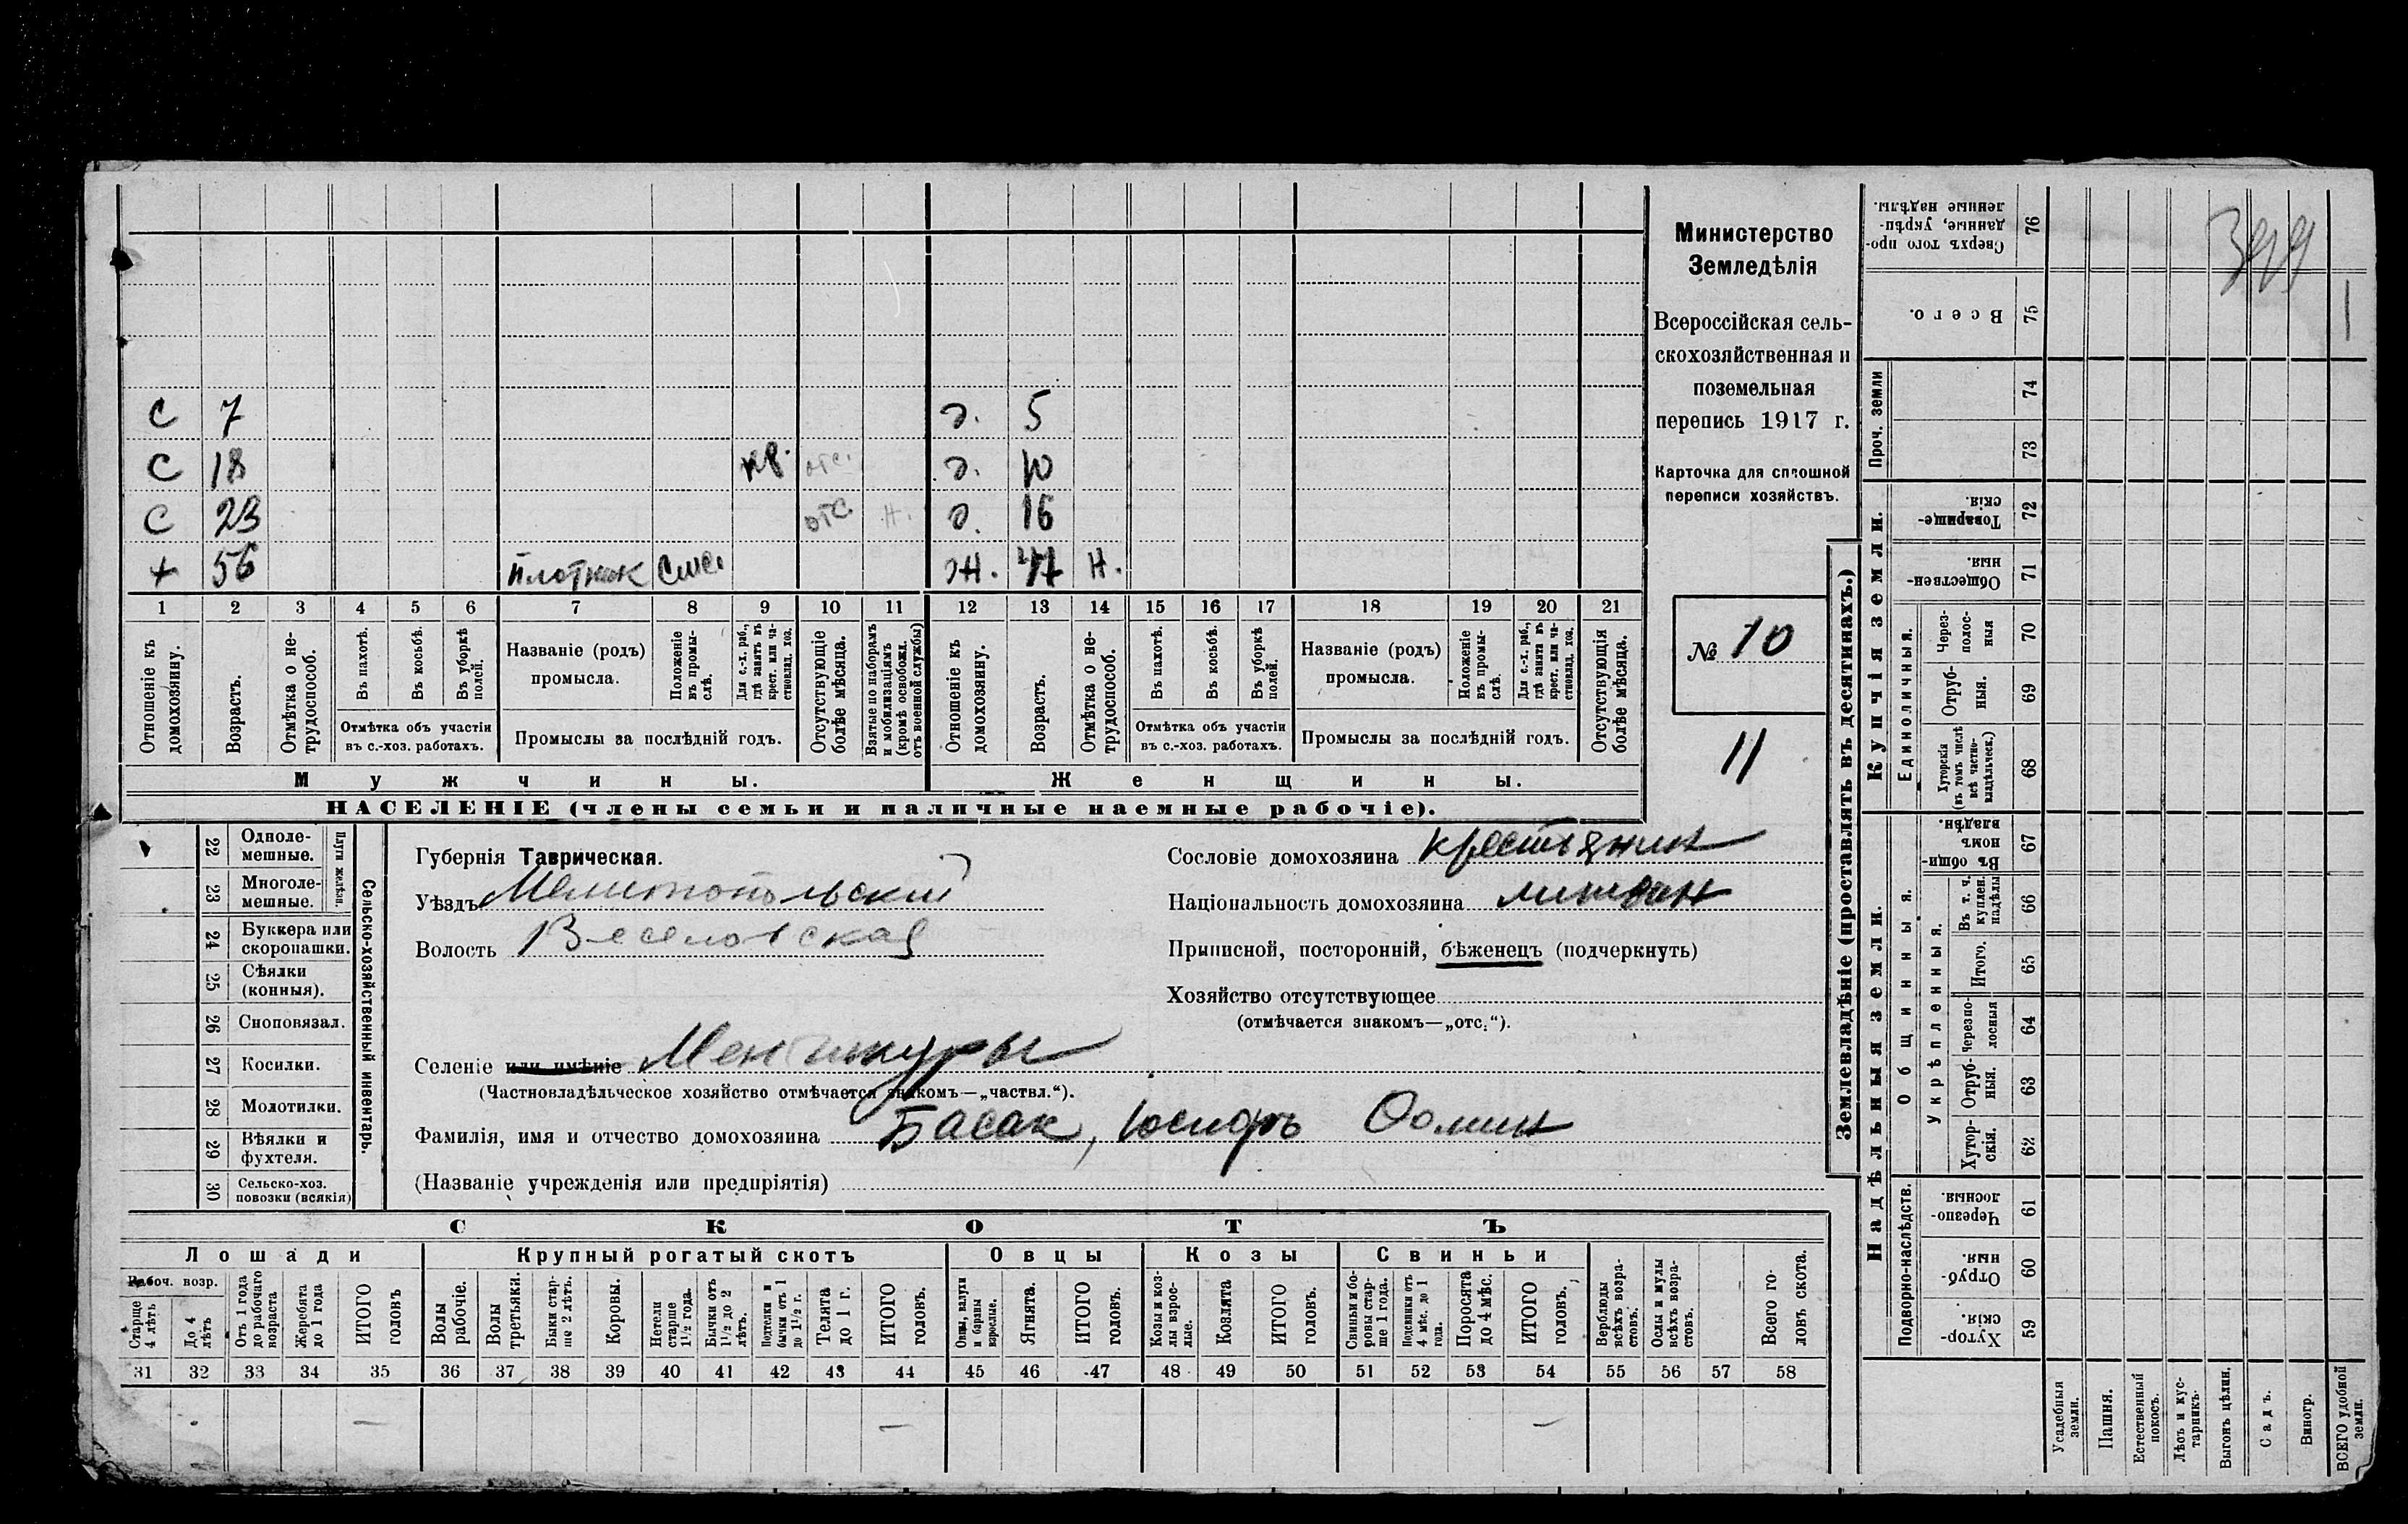 С 7 д. 5
С 18 кр. отс. д. 10
С 23 отс. н. д. 16
+ 56 плотник ж. 47 н.
1 2 3 4 5 6 7 8 9 10 11 12 13 14 15 16 17 18 19 20 21
Отношеніе къ домохозяину.
Возрастъ.
Отмѣтка о нетрудоспособ.
Въ пахотѣ.
Въ косьбѣ.
Въ уборкѣ полей.
Отмѣтка объ участіи
въ с.-хоз. работахъ.
Названіе (родъ)
промысла.
Положеніе въ промыслѣ.
Для с.-х. раб., гдѣ занятъ въ крест. или частновлад. хоз.
Промыслы за послѣдній годъ.
Отсутствующіе болѣе мѣсяца.
Взятые по наборамъ и мобилизаціямъ (кромѣ освобожд. отъ военной службы)
Отношеніе къ домохозяину.
Возрастъ.
Отмѣтка о нетрудоспособ.
Въ пахотѣ.
Въ косьбѣ.
Въ уборкѣ полей.
Отмѣтка объ участіи
въ с.-хоз. работахъ.
Названіе (родъ)
промысла.
Положеніе въ промыслѣ.
Для с.-х. раб., гдѣ занята въ крест. или частновлад. хоз.
Промыслы за послѣдній годъ.
Отсутствующія болѣе мѣсяца.
Мужчины.
Женщины.
НАСЕЛЕНІЕ (члены семьи и наличные наемные рабочіе).
Министерство
Земледѣлія
Всероссійская сель-
скохозяйственная и
поземельная
перепись 1917 г.
Карточка для сплошной
переписи хозяйствъ.
№ 10
11
Сельско-хозяйственный инвентарь.
Плуги желѣзн.
22 Одноле-
мешные.
23 Многоле-
мешные.
24 Буккера или
скоропашки.
25 Сѣялки
(конныя).
26 Сноповязал.
27 Косилки.
28 Молотилки.
29 Вѣялки и
фухтеля.
30 Сельско-хоз.
повозки (всякія)
Губернія Таврическая.
Уѣздъ Мелитопольский
Волость Веселовская
Селеніе или имѣніе Менчикуры
(Частновладѣльческое хозяйство отмѣчается знакомъ—„частвл.“).
Фамилія, имя и отчество домохозяина Басак, Юсифъ Фомин
(Названіе учрежденія или предпріятія)
Сословіе домохозяина крестьянин
Національность домохозяина
Приписной, посторонній, бѣженецъ (подчеркнуть)
Хозяйство отсутствующее
(отмѣчается знакомъ—„отс.“).
СКОТЪ
Лошади
Рабоч. возр.
Старше 4 лѣтъ
До 4 лѣтъ
Отъ 1 года до рабочаго возраста
Жеребята до 1 года
ИТОГО головъ
Крупный рогатый скотъ
Волы рабочіе.
Волы третьяки.
Быки старше 2 лѣтъ.
Коровы.
Нетели старше 1½ года.
Бычки отъ 1½ до 2 лѣтъ.
Подтелки и бычки отъ 1 до 1½ г.
Телята до 1 г.
ИТОГО головъ.
Овцы
Овцы, валухи и бараны взрослые.
Ягнята.
ИТОГО головъ.
Козы
Козы и козлы взрослые.
Козлята
ИТОГО головъ.
Свиньи
Свиньи и боровы старше 1 года.
Подсвинки отъ 4 мѣс. до 1 года.
Поросята до 4 мѣс.
ИТОГО головъ.
Верблюды всѣхъ возрастовъ.
Ослы и мулы всѣхъ возрастовъ.
Всего головъ скота.
31 32 33 34 35 36 37 38 39 40 41 42 43 44 45 46 47 48 49 50 51 52 53 54 55 56 57 58
— — —
Землевладѣніе (проставлять въ десятинахъ.)
Купчія земли.
Надѣльныя земли.
Сверхъ того проданные, укрѣпленные надѣлы. 76
Всего. 75
Проч. земли
74
73
Товарищескія. 72
Общественныя. 71
Единоличныя.
Черезполосныя 70
Отрубныя. 69
Хуторскія (въ томъ числѣ всѣ частновладѣльческ.) 68
Общинныя.
Въ общинномъ владѣн. 67
Укрѣпленныя.
Въ т. ч. куплен. надѣлы 66
Итого. 65
Черезполосныя 64
Отрубныя. 63
Хуторскія. 62
Подворно-наслѣдств.
Черезполосныя. 61
Отрубныя. 60
Хуторскія. 59
Усадебныя земли.
Пашня.
Естественный покосъ.
Лѣсъ и кустарникъ.
Выгонъ цѣлин.
Садъ.
Виногр.
ВСЕГО удобной земли.